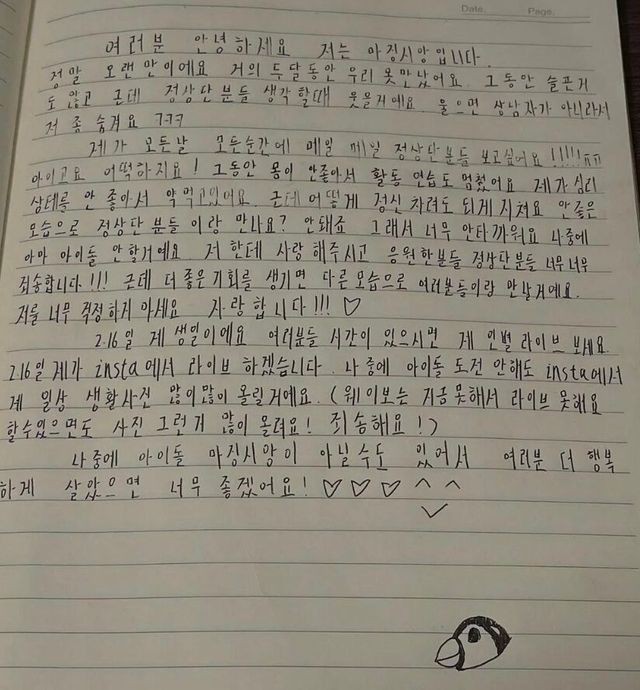 Date. Page.
여러분 안녕하세요 저는 마징시앙입니다.
정말 오랜만이에요 거의 두달동안 우리 못만났어요. 그동안 슬픈거
도 많고 근데 정상단분들 생각할때 웃을거에요. 울으면 상남자가 아니라서
저 좀 숨겨요 ㅋㅋㅋ
제가 모든날 모든순간에 매일 매일 정상단분들 보고싶어요!!!!! ㅠㅠ
아이고요 어떡하지요! 그동안 몸이 안좋아서 활동 연습도 멈췄어요 제가 심리
상태를 안 좋아서 약 먹고있어요. 근데 어떻게 정신 차려도 되게 지쳐요 안좋은
모습으로 정상단 분들 이랑 만나요? 안돼죠 그래서 너무 안타까워요 나중에
아마 아이돌 안할거예요. 저 한테 사랑 해주시고 응원한분들 정상단분들 너무너무
죄송합니다!!! 근데 더 좋은 기회를 생기면 다른 모습으로 여러분들이랑 만날거에요.
저를 너무 걱정하지 마세요 사랑합니다!!! ♡
2.16일 제 생일이에요 여러분들 시간이 있으시면 제 인별 라이브 보세요.
2.16일 제가 insta에서 라이브 하겠습니다. 나중에 아이돌 도전 안해도 insta에서
제 일상 생활사진 많이많이 올릴거에요. (웨이보는 지금못해서 라이브 못해요
할수있으면도 사진 그런거 많이 올려요! 죄송해요!)
나중에 아이돌 마징시앙이 아닐수도 있어서 여러분 더 행복
하게 살았으면 너무 좋겠어요! ♡ ♡ ♡ ^ ^